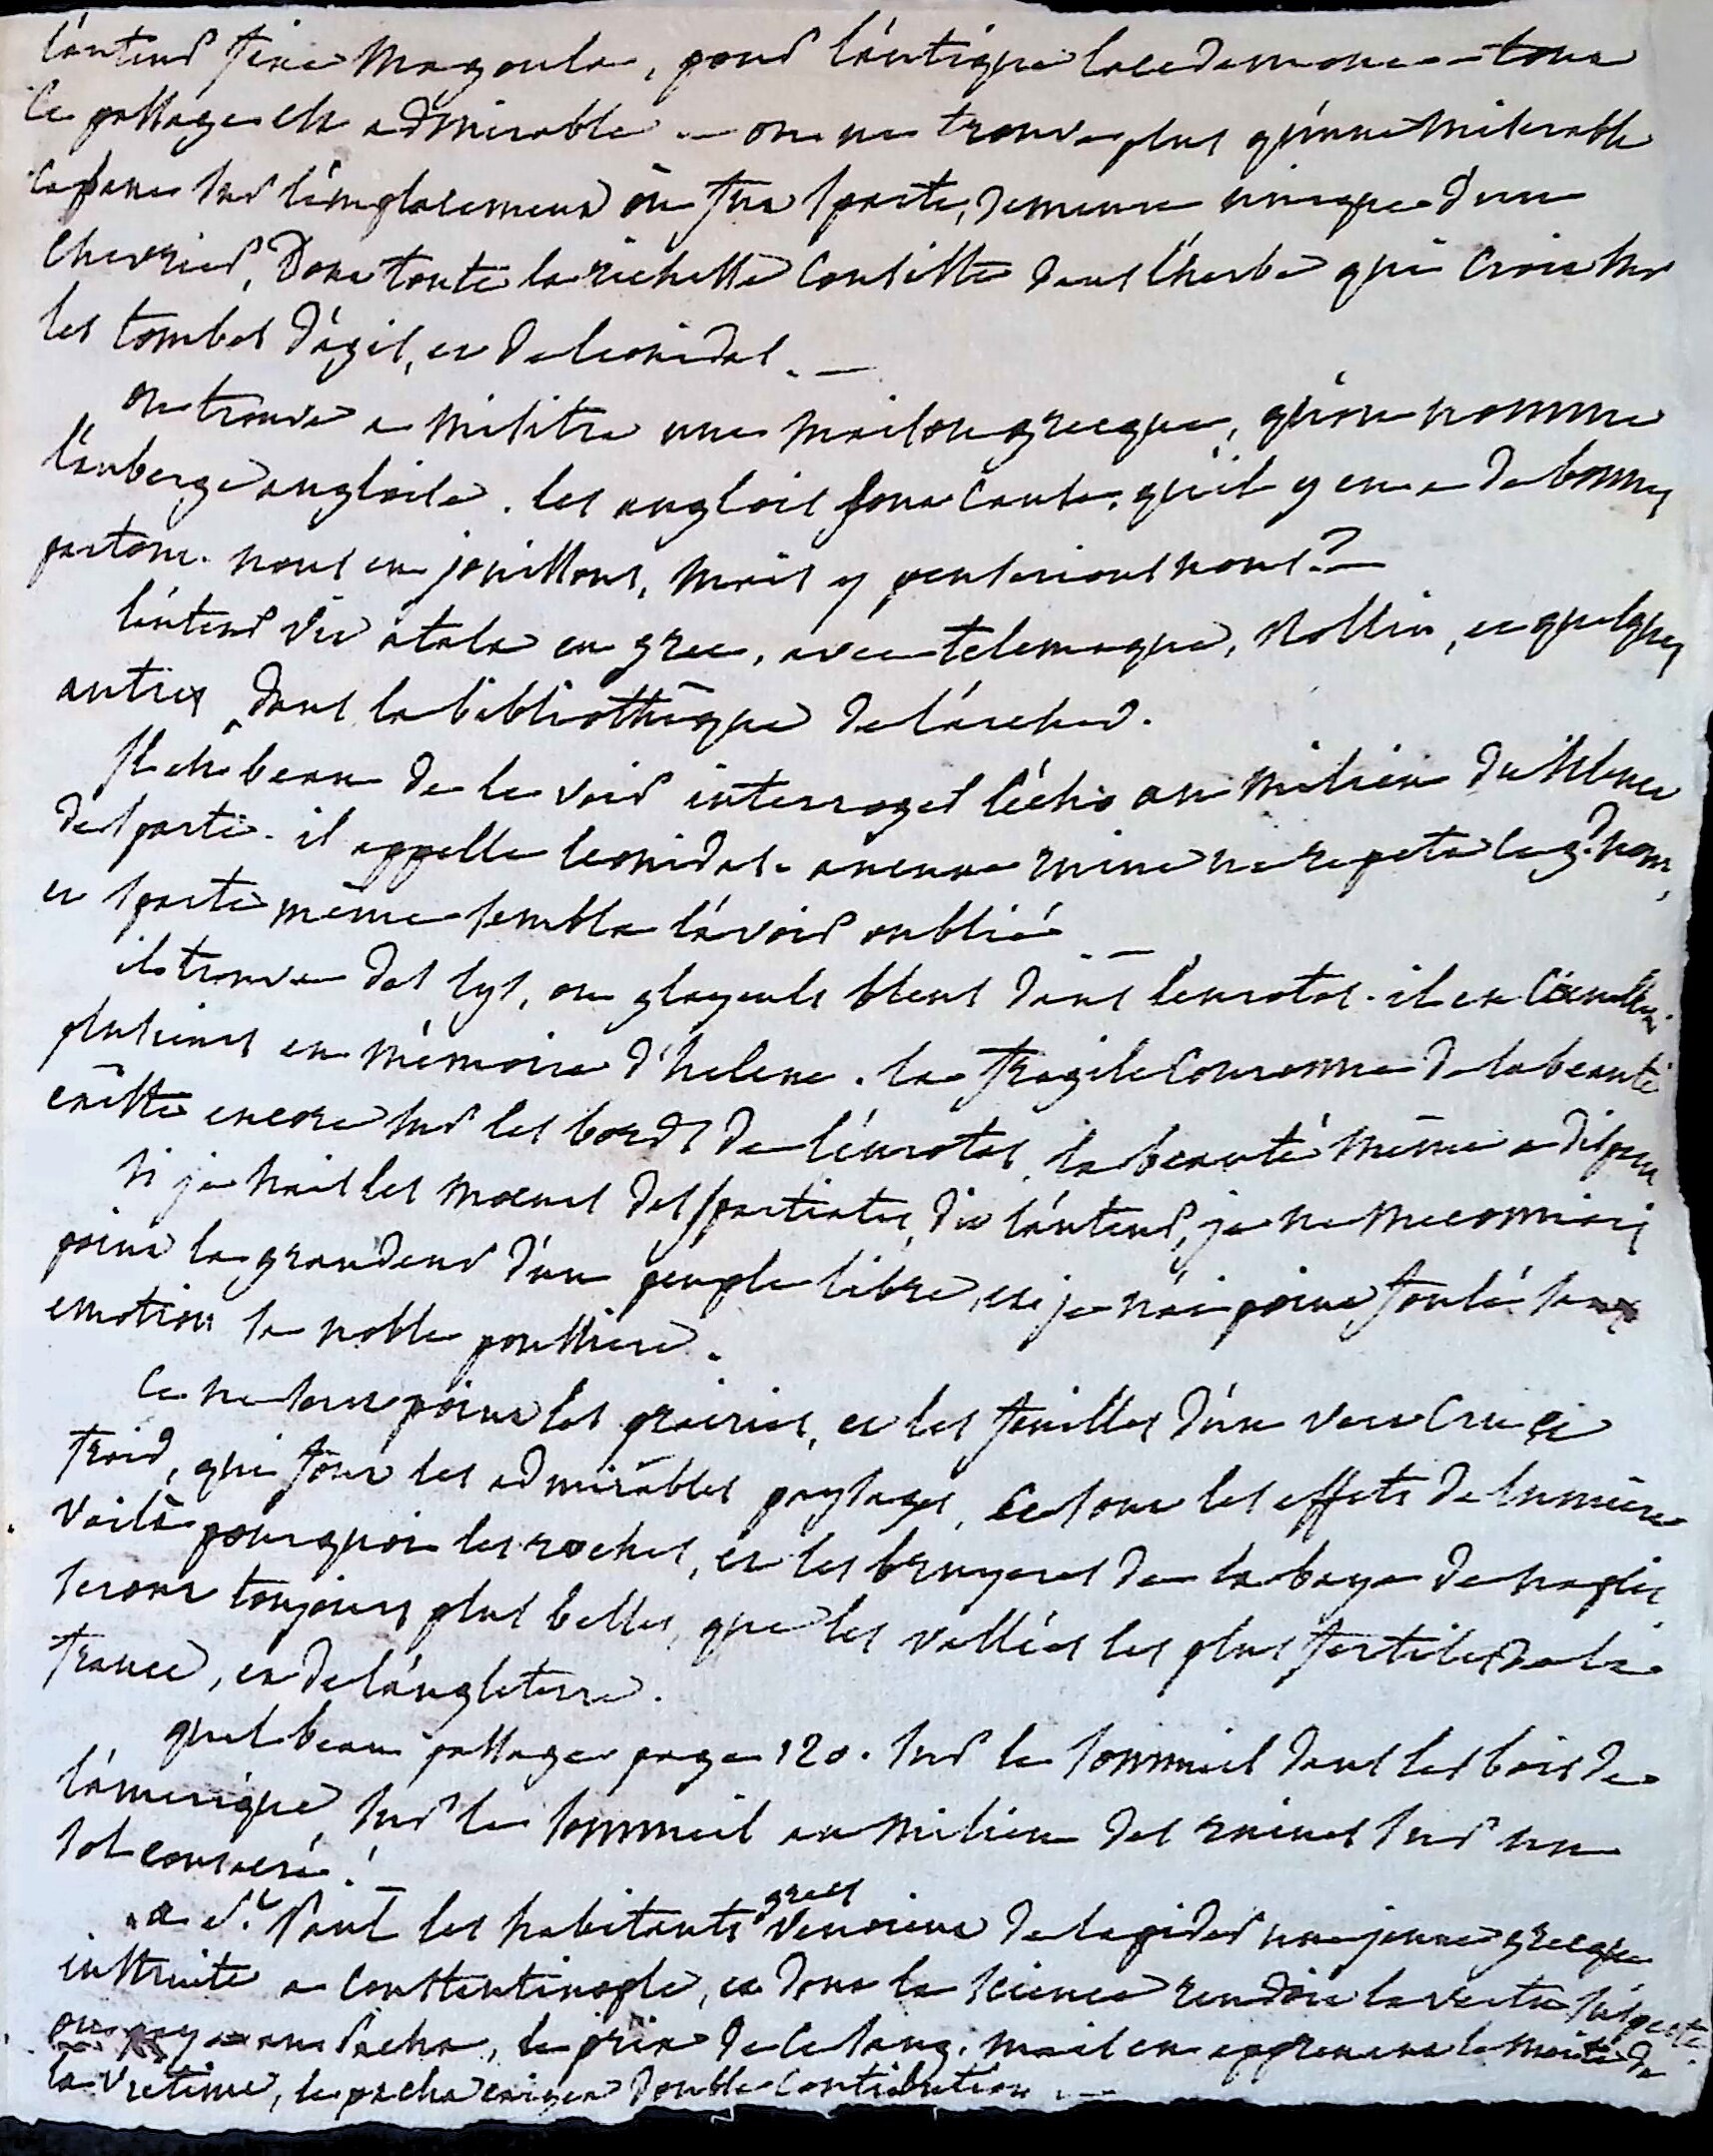 l'auteur fixe Magoula, pour l'antique lacedemone -- tout
le passage est admirable -- on ne trouve plus qu'une miserable
cabane sur l'emplacement où fut sparte, demeure unique d'un
chevrier, Dont toute la richesse consiste dans l'herbe qui croit sur
les tombes d'agis, et de leonidas. —
on trouve a misitra une maison grecque, qu'on nomme
l'auberge angloise. les anglois sont cause, qu'il y en a de bonnes
partout. nous en jouissons, mais y penserions nous? —
l'auteur vit atala en grec, avec telemaque, Rollin, et quelques
autres dans la bibliothèque de l'archev.
Il est beau de le voir interroger l'écho au milieu du silence
de sparte. il appelle leonidas. aucune ruine ne repeta le gd. nom,
et sparte même sembla l'avoir oublié. —
il trouve des lys, ou glayeuls bleus dans l'eurotas. il en cueille
plusieurs en mémoire d'helene. la fragile couronne de la beauté
existe encore sur les bords de l'eurotas, la beauté même a disparu
si je hais les moeurs des spartiates, dit l'auteur, je ne meconnois
point la grandeur d'un peuple libre, et je n'ai point foulé sans
emotion sa noble poussiere.
ce ne sont point les prairies, et les feuilles d'un verd cru et
froid, qui font les admirables paysages, ce sont les effets de lumière
voilà pourquoi les roches, et les bruyeres de la baye de naples
seront toujours plus belles, que les vallées les plus fertiles de la
france, et de l'angleterre.
quel beau passage page 120. sur le sommeil dans les bois de
l'amerique, sur le sommeil au milieu des ruines sur un
sol consacré! —
a St. Paul les habitants grecs venoient de lapider une jeune grecque
instruite a constantinople, et dont la science rendoit la vertu suspecte.
on paya au pacha, le prix de ce sang. mais en apprenant la beauté de
la victime, le pacha exigea double contribution. —